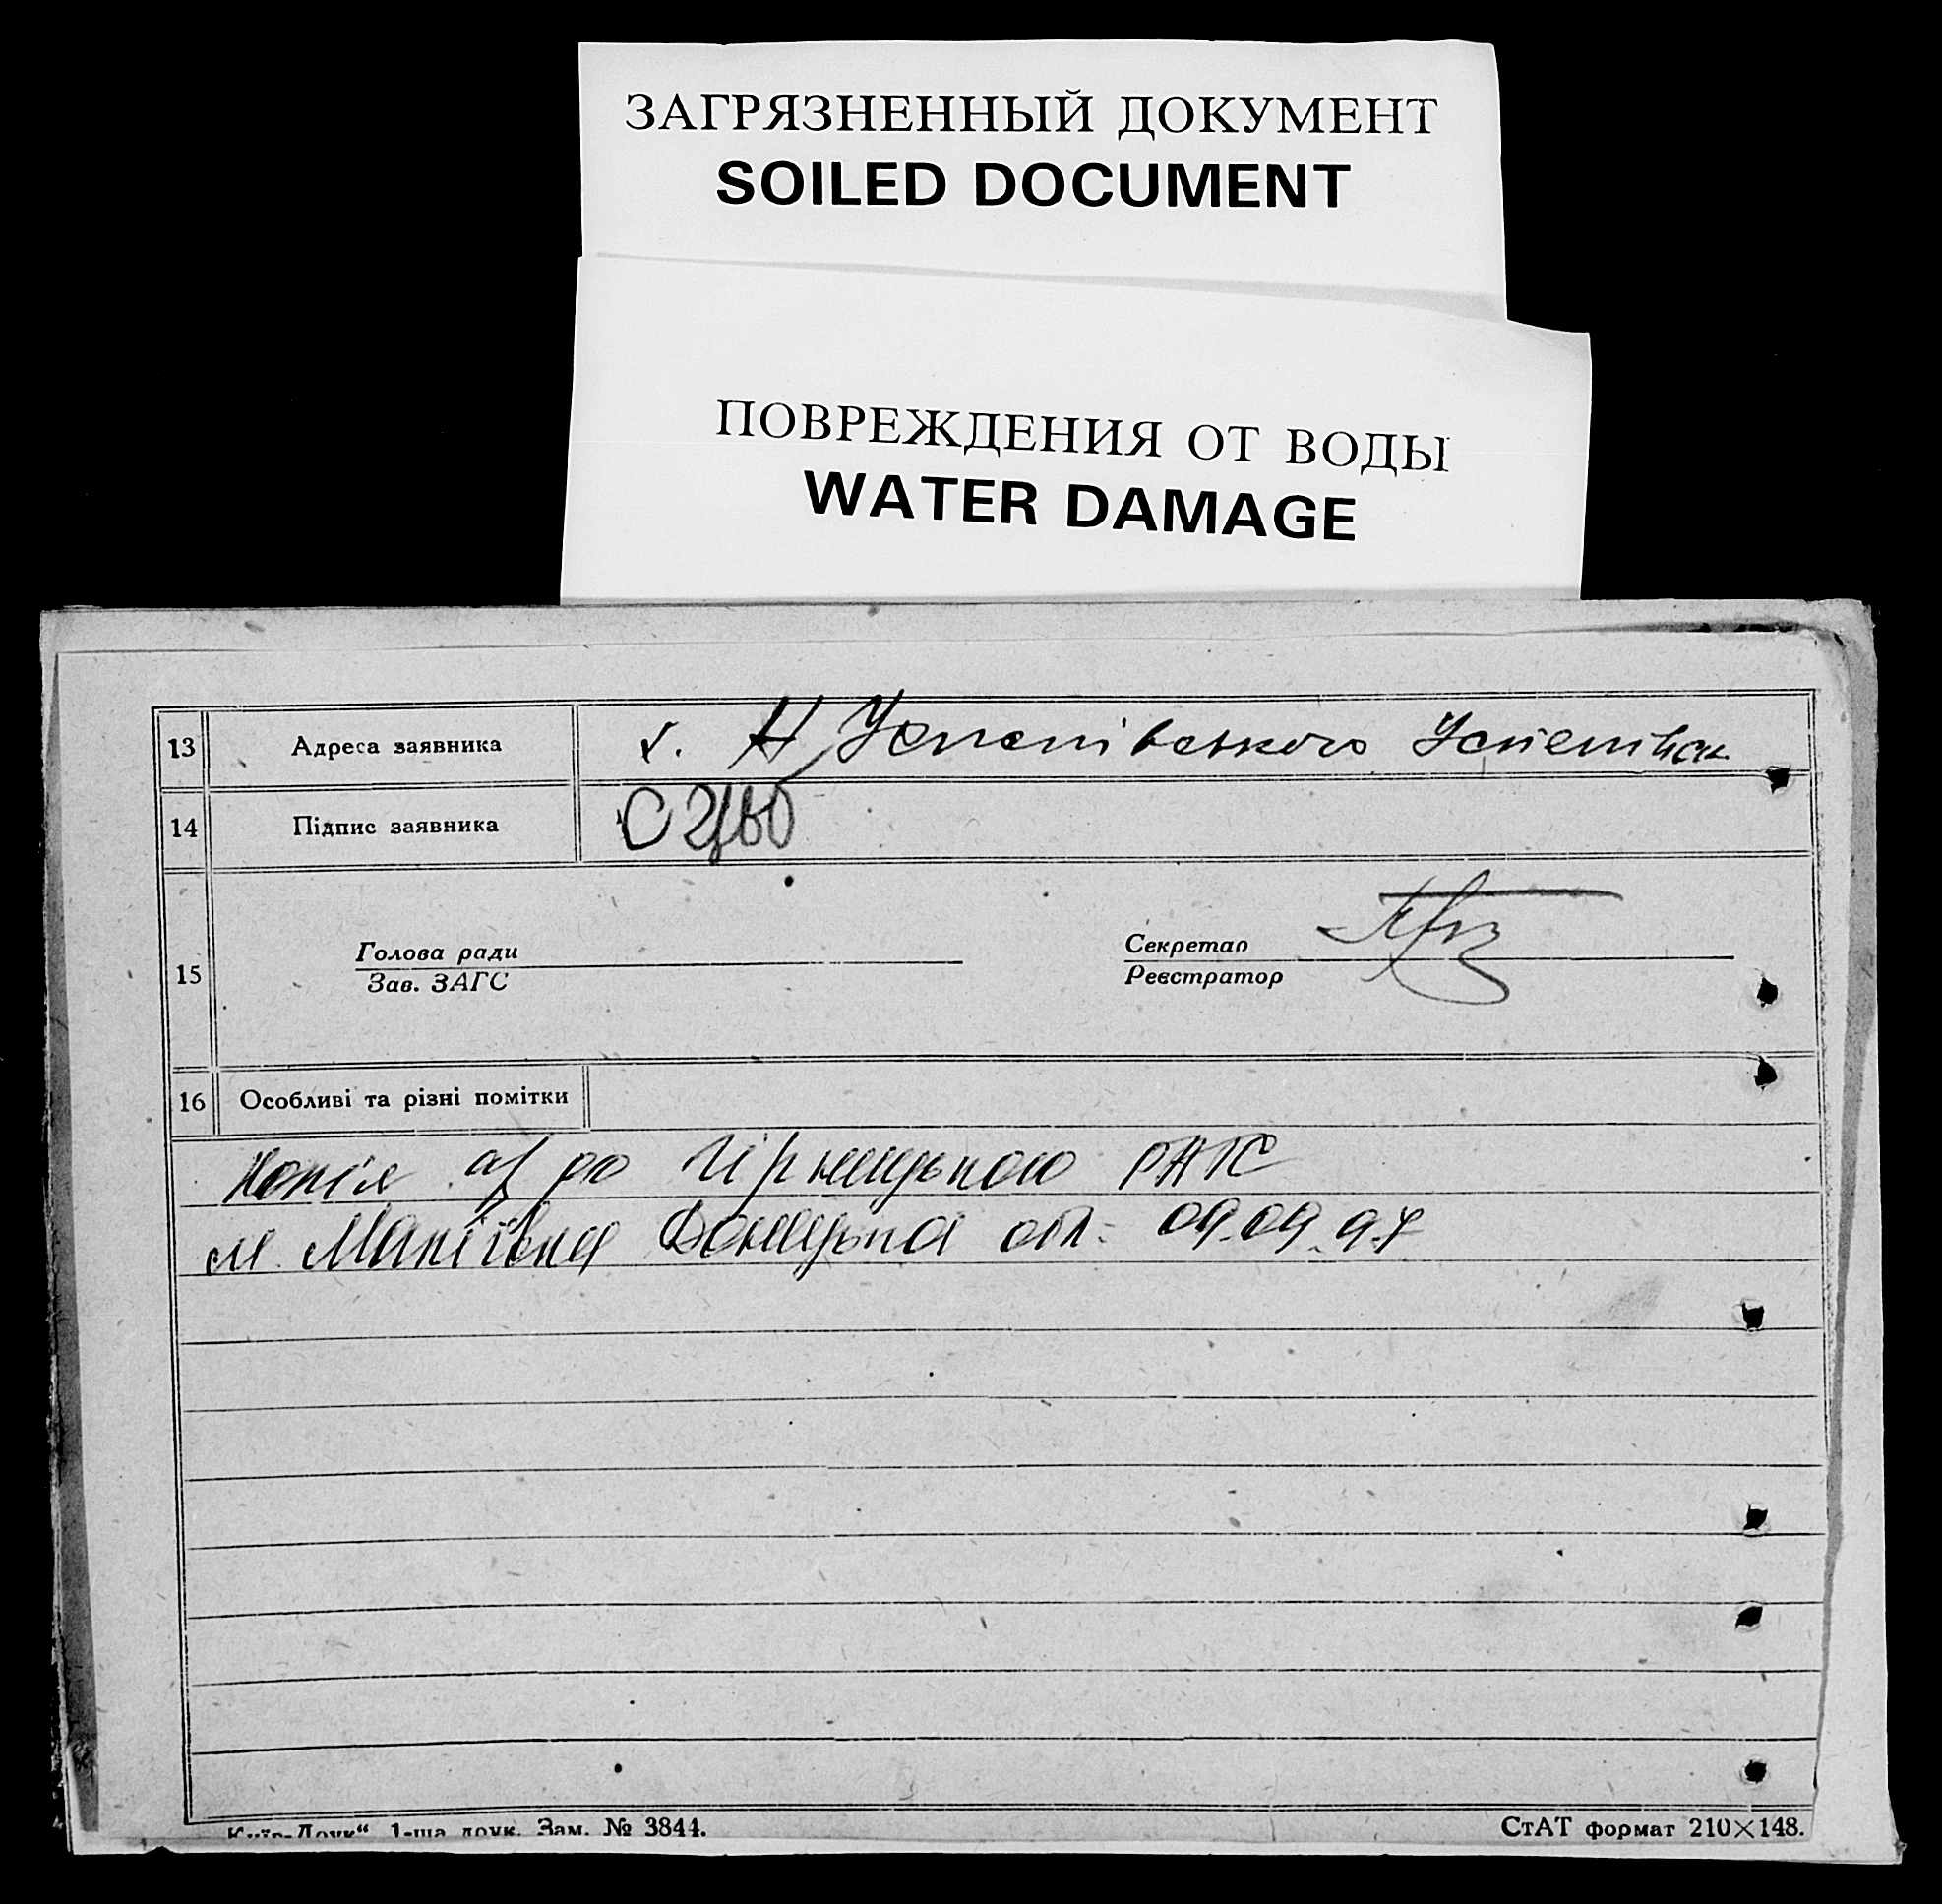 ЗАГРЯЗНЕННЫЙ ДОКУМЕНТ
SOILED DOCUMENT
ПОВРЕЖДЕНИЯ ОТ ВОДЫ
WATER DAMAGE
13 Адреса заявника Н Успенівського
14 Підпис заявника
15 Голова ради Секретар
Зав. ЗАГС Реєстратор
16 Особливі та різні помітки
Копія а/з до Гірницького РАГС
м. Макіївка Донецька обл. 09.09.97
Київ-Друк“ 1-ша друк. Зам. № 3844. СтАТ формат 210×148.